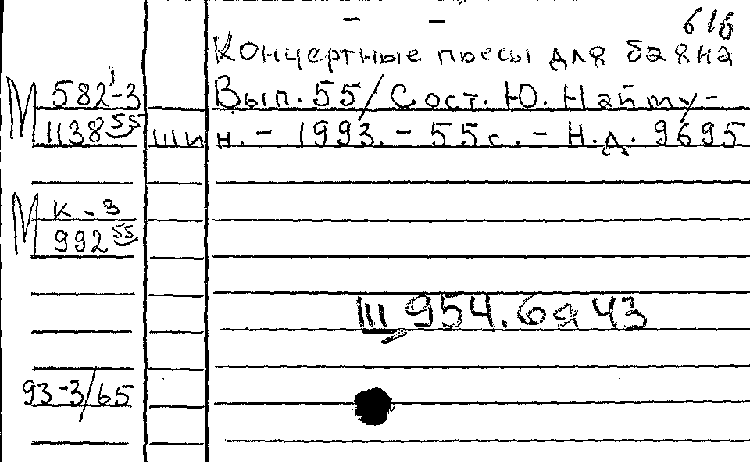 616
Концертные пьесы для баяна
М 582-3 Вып. 55/Сост. Ю. Найму-
1138 55 ши н. - 1993. - 55 с. - Н.д. 9695
М К-3
992 55
Ш 954.6я43
93-3/65